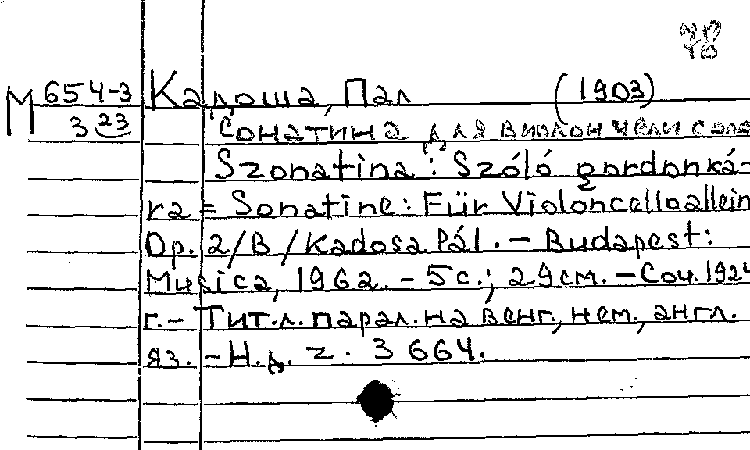 М 654-3 Кадоша, Пал (1903)
3 23 Сонатина для виолончели соло
Szonatina: Szóló gordonká-
ra = Sonatine: Für Violoncello allein
Op. 2/B / Kadosa Pál. - Budapest:
Musica, 1962. - 5 с.; 29 см. - Соч. 1924
г. - Тит. л. парал. на венг., нем., англ.
яз. - Н. д. Z. 3 664.